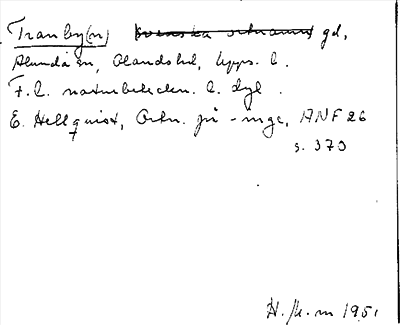 Tranby(n) Svenska ortnamn gd,
Alunda sn, Olands hd, Upps. l.
F.l. naturbeteckn. l. dyl.
E. Hellquist, Ortn. på -inge, ANF 26
s. 370
H. M-m 1951